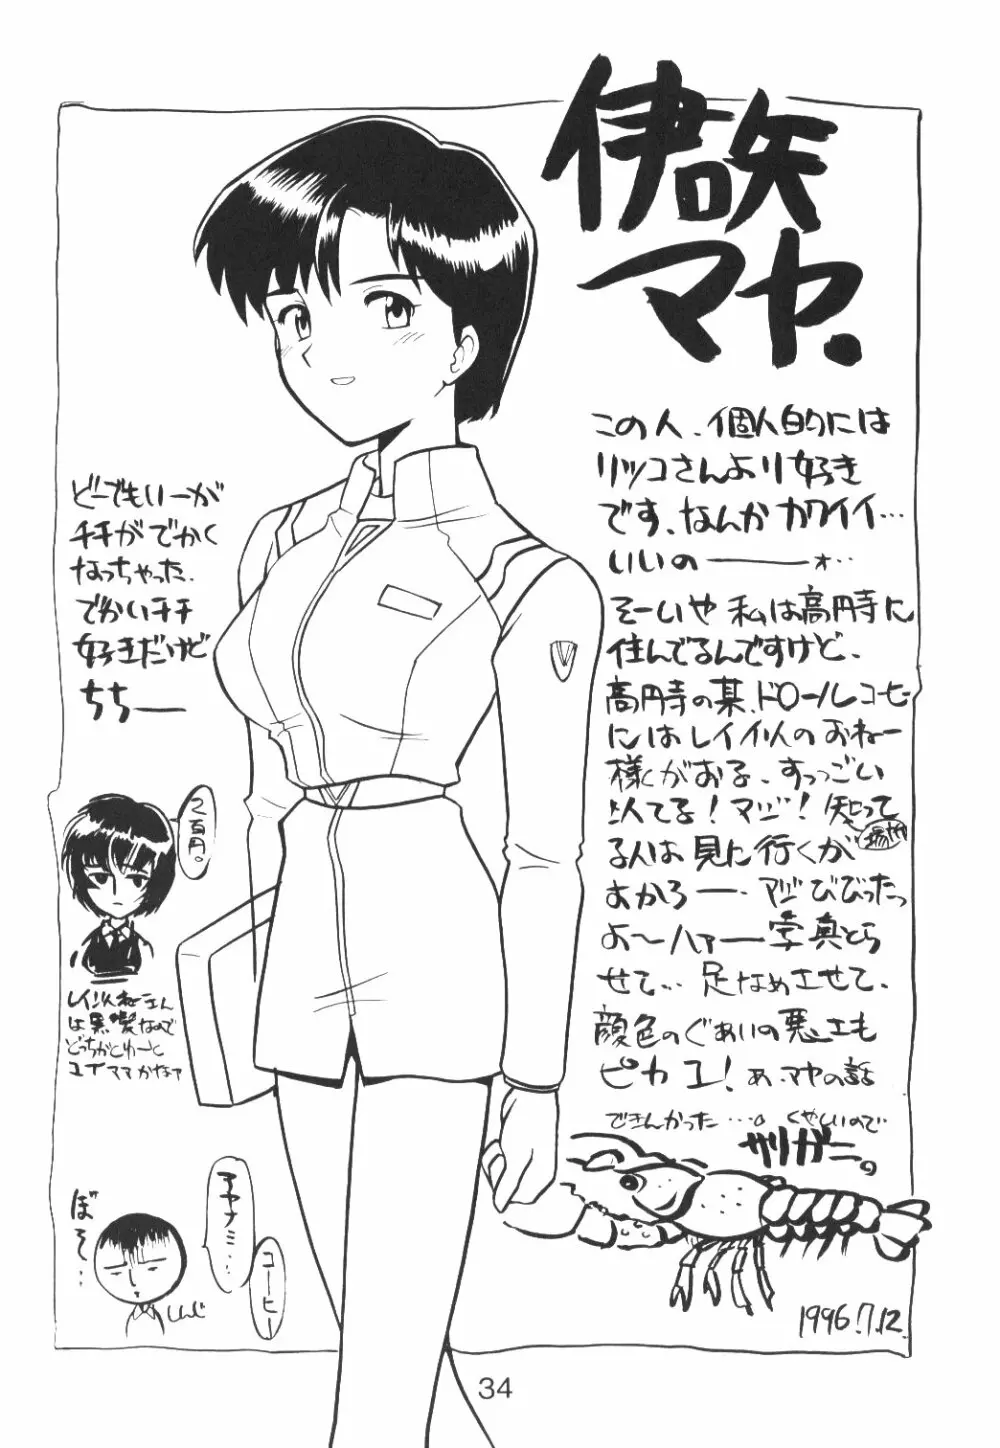 伊吹マヤ.
この人、個人的には
リツコさんより好き
です、なんかカワイイ…
いいの――ォ..
そーいや 私は高円寺に
住んでるんですけど、
高円寺の某、ドロールコーヒー
にはレイ似のおねー
様がおる、すっごい
似てる!マジ!知って
る人は見に行くが
よかろー… マジびびったっ
よ〜ハァ――写真とら
せて… 足なめさせて、
顔色のぐあいの悪エも
ピカ ユ! あ、マヤの話
できんかった…。くやしいので
ザリガニ。
1996.7.12.
どーでもいーが
チチがでかく
なっちゃった、
でかいチチ
好きだけど
ちち――
2百円。
レイ似ねーさん
は黒髪なので
どっちかとゆーと
ユイママかなァ
ぼそ〜…
アヤナミ…
コーヒー
しんじ
34